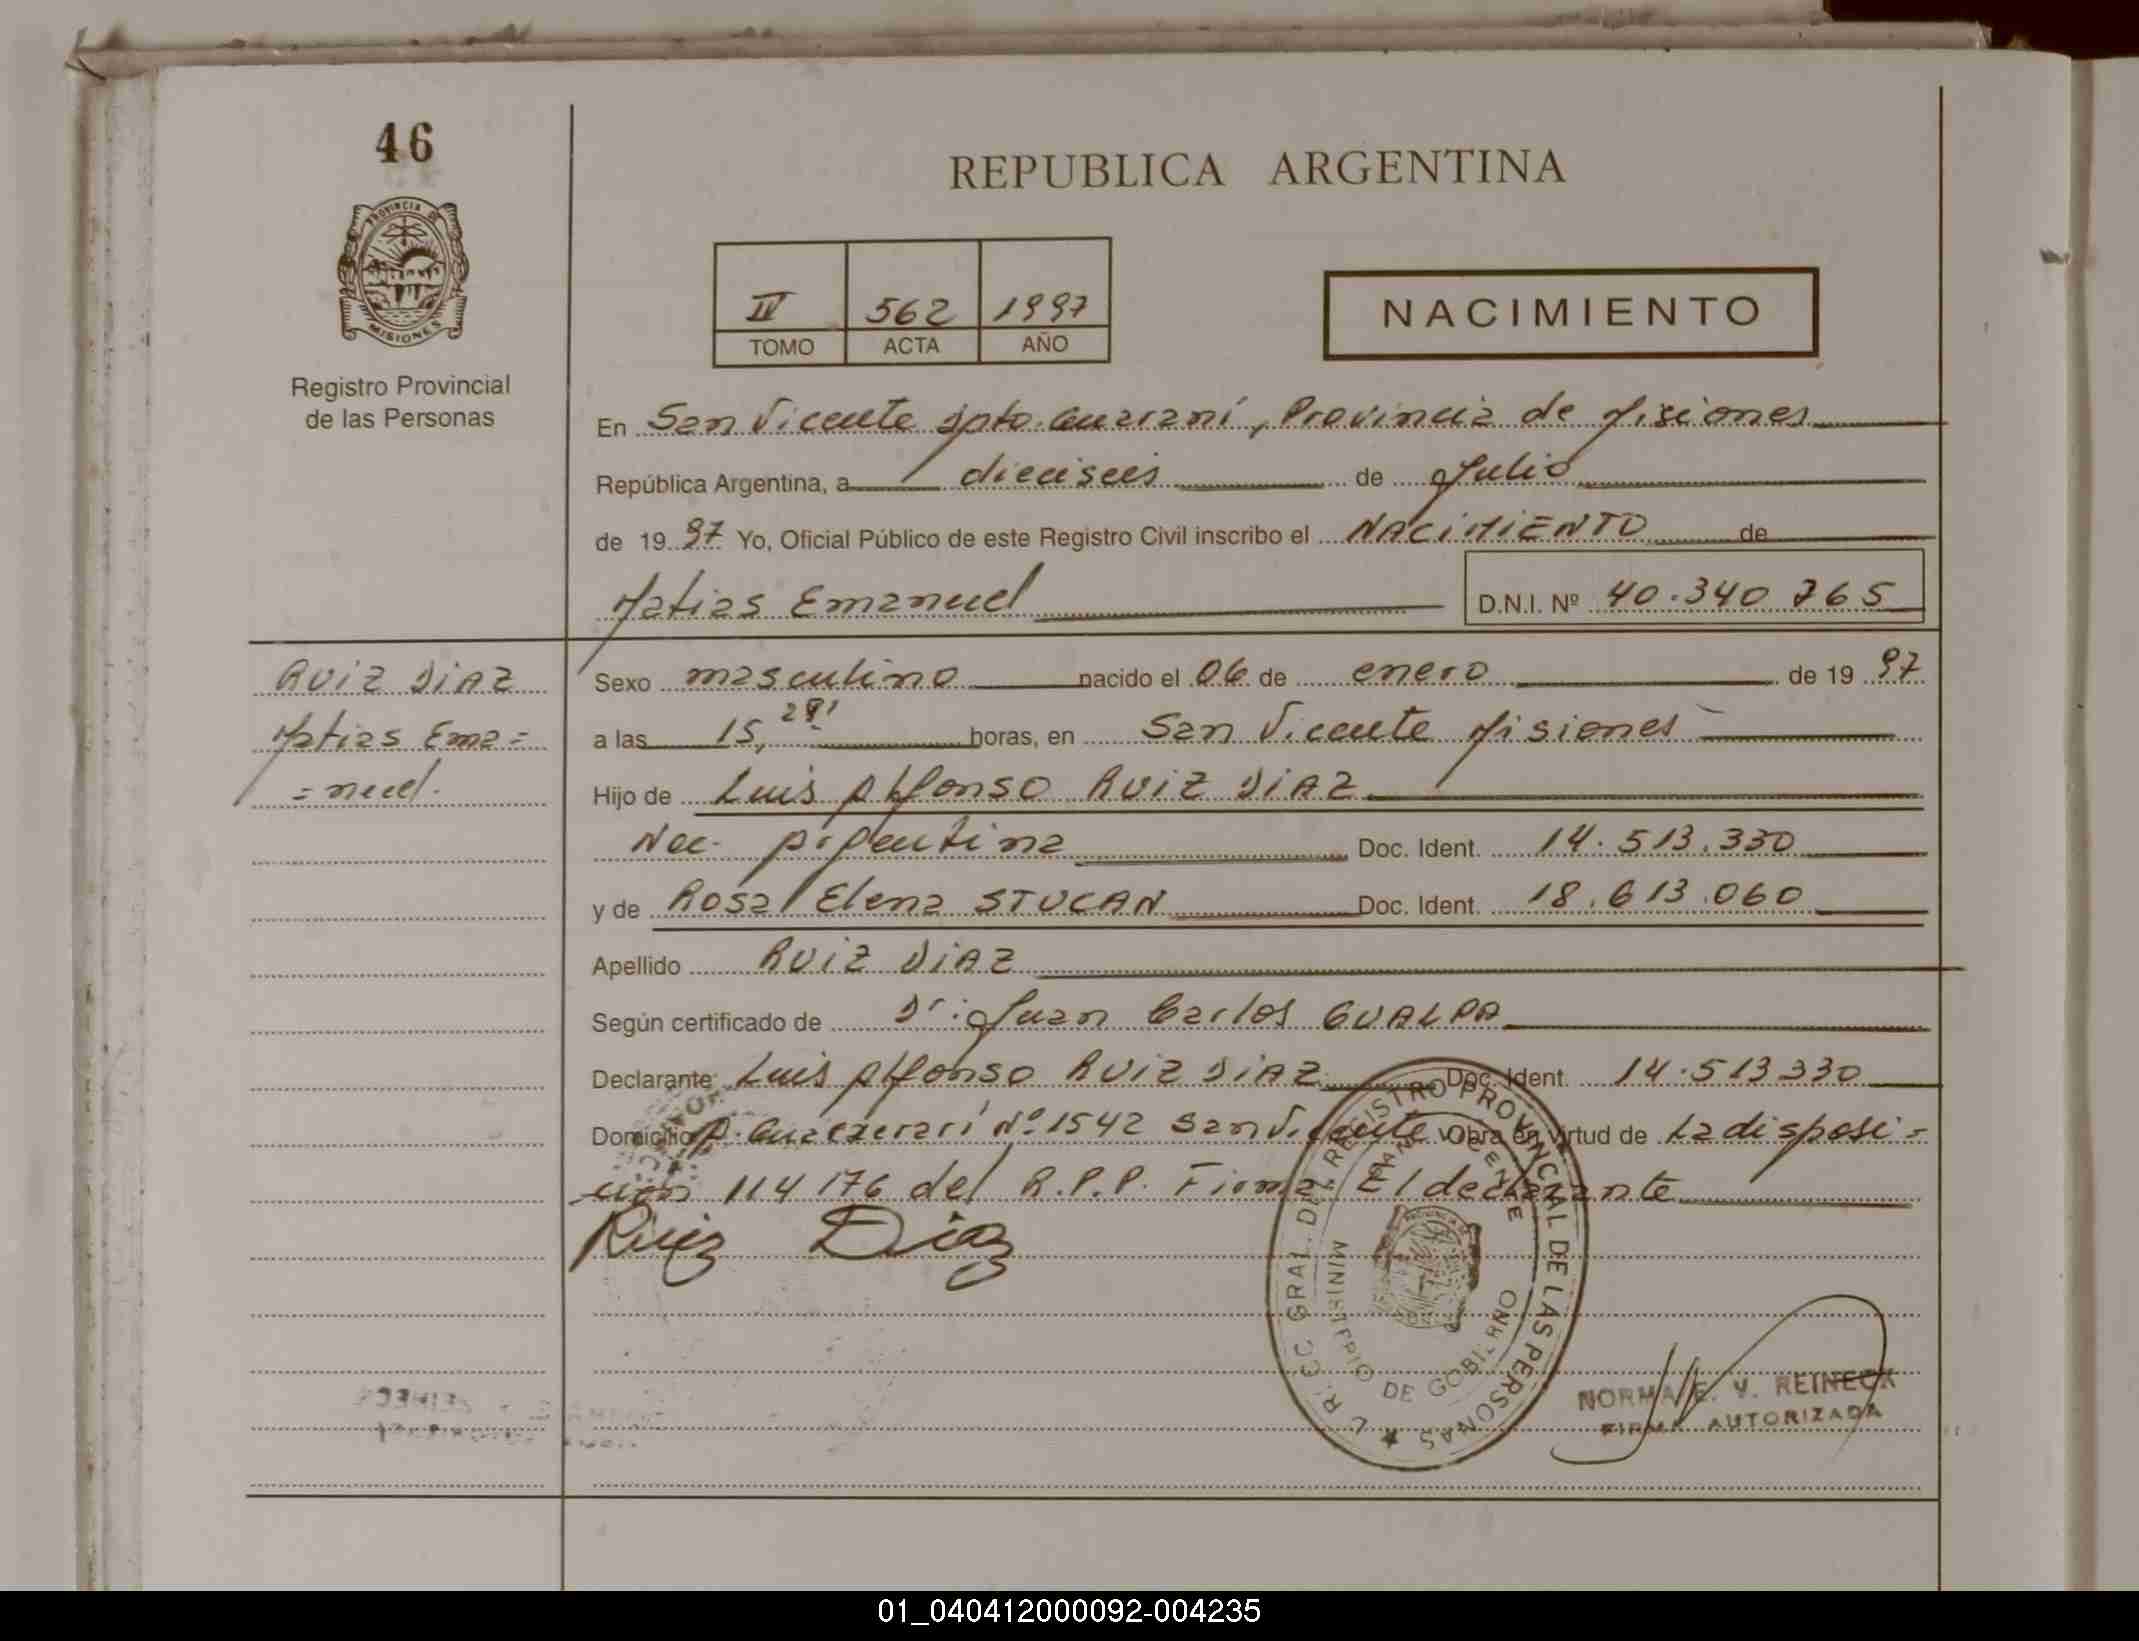 46
PROVINCIA DE
MISIONES
Registro Provincial
de las Personas
REPUBLICA ARGENTINA
IV 562 1997
TOMO ACTA AÑO
NACIMIENTO
En San Vicente Dpto. Guaraní, Provincia de Misiones
República Argentina, a dieciseis de Julio
de 19 97 Yo, Oficial Público de este Registro Civil inscribo el NACIMIENTO de
Matias Emanuel D.N.I. Nº 40.340 765
RUIZ DIAZ
Matias Ema=
=nuel.
Sexo masculino nacido el 06 de enero de 19 97
a las 15, horas, en San Vicente Misiones
Hijo de Luis Alfonso RUIZ DIAZ
Nac. Argentina Doc. Ident. 14.513.330
y de Rosa Elena STUCAN Doc. Ident. 18.613.060
Apellido RUIZ DIAZ
Según certificado de Dr. Juan Carlos GUALPA
Declarante Luis Alfonso RUIZ DIAZ Doc. Ident. 14.513330
Domicilio Nº 1542 San Vicente Obra en virtud de La disposi=
=cion 114/176 del R.P.P. Firma El declarante
Ruiz Diaz
GRAL. DEL REGISTRO PROVINCIAL DE LAS PERSONAS
SAN VICENTE
MINISTERIO DE GOBIERNO
NORMA E. V. REINECK
FIRMA AUTORIZADA
01_040412000092-004235